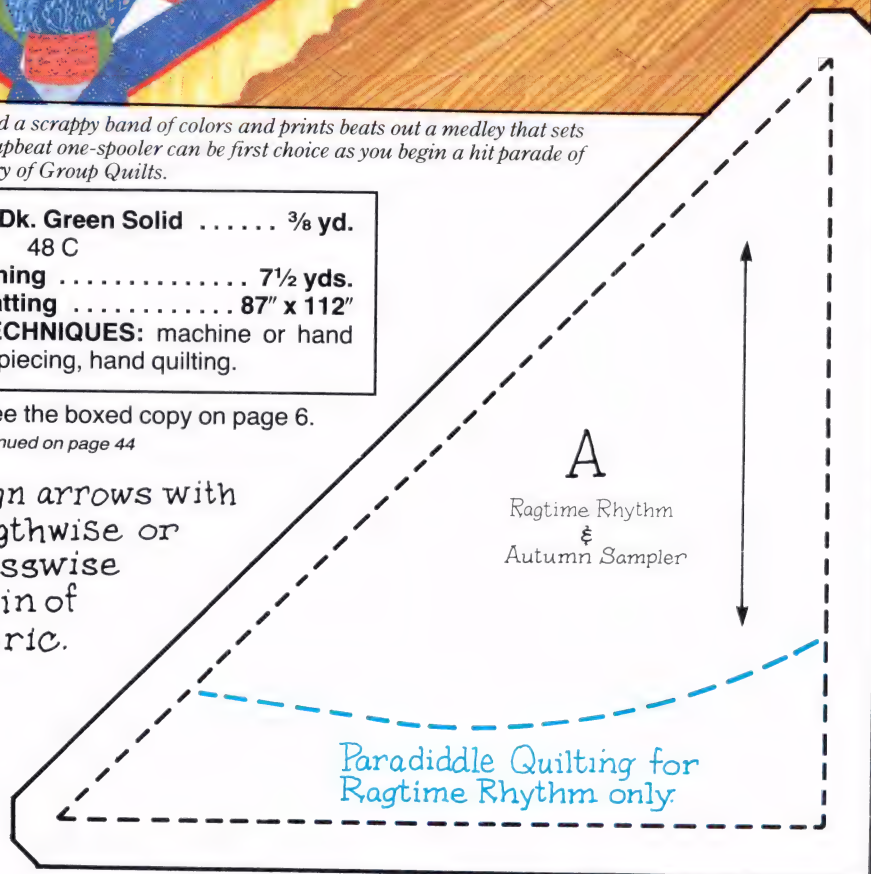 d a scrappy band of colors and prints beats out a medley that sets
upbeat one-spooler can be first choice as you begin a hit parade of
y of Group Quilts.
Dk. Green Solid ...... ⅜ yd.
48 C
ning .............. 7½ yds.
tting ............ 87″ x 112″
ECHNIQUES: machine or hand
piecing, hand quilting.
ee the boxed copy on page 6.
nued on page 44
gn arrows with
gthwise or
sswise
in of
ric.
A
Ragtime Rhythm
&
Autumn Sampler
Paradiddle Quilting for
Ragtime Rhythm only.